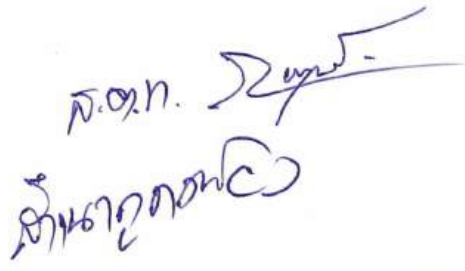 ส.ต.ท.
สำเนาถูกต้อง